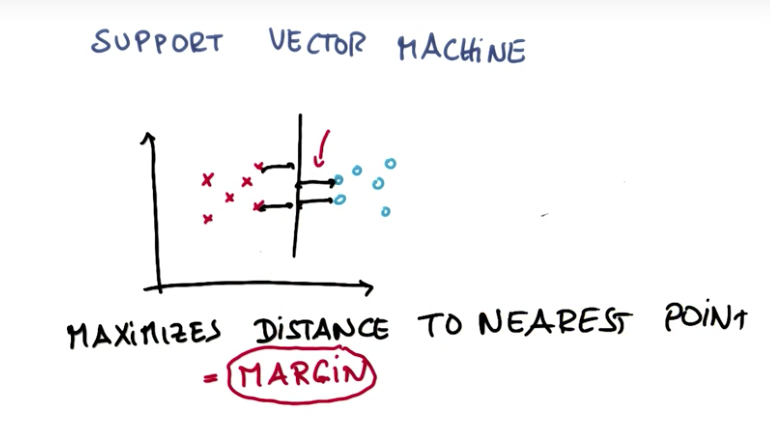 SUPPORT VECTOR MACHINE
MAXIMIZES DISTANCE TO NEAREST POINT
= MARGIN